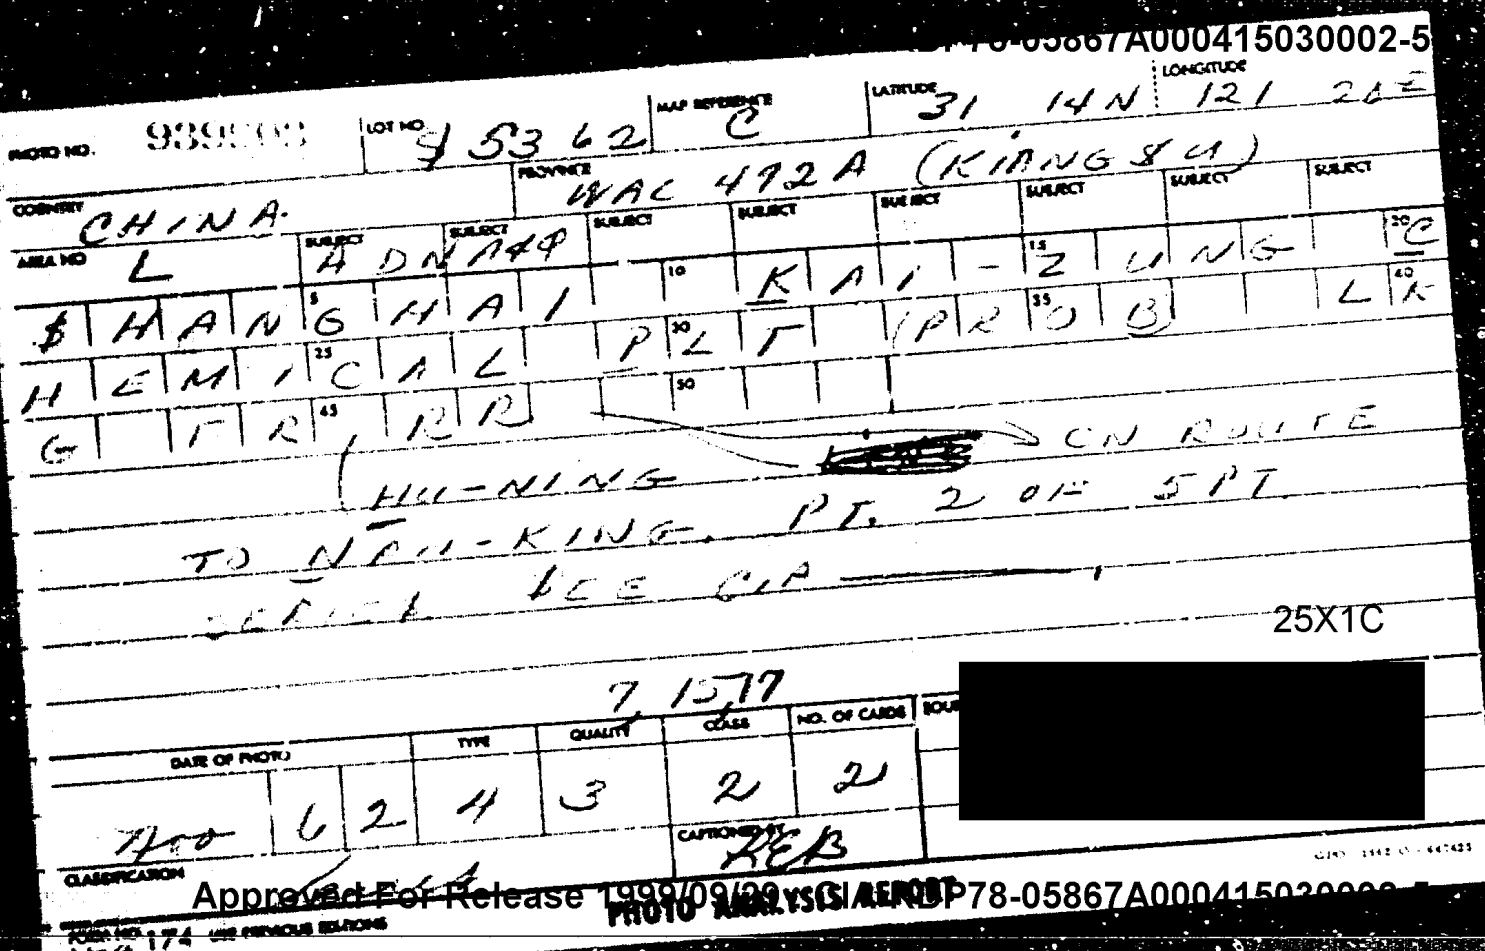 P78-05867A000415030002-5
PHOTO NO. LOT NO 5362 MAP REFERENCE C LATITUDE 31 14N LONGITUDE 121 26E
COUNTRY CHINA. PROVINCE WAC 492A (KIANGSU)
AREA NO L SUBJECT SUBJECT SUBJECT SUBJECT SUBJECT SUBJECT SUBJECT SUBJECT
SHANGHAI KAI-ZUNG C
HEMICAL PLT (PROB) LK
G FR, RR
HU-NING ON ROUTE
TO KING. PT. 2 OF 5 PT.
SERIES SEE C/P
25X1C
7, 15, 17
DATE OF PHOTO TYPE QUALITY CLASS NO. OF CARDS
62 4 3 2 2
CLASSIFICATION CAPTIONED BY REB
Approved For Release 1999/09/29 : CIA-RDP78-05867A000415030002-5
PHOTO ANALYSIS REPORT
FORM NO. 174 USE PREVIOUS EDITIONS